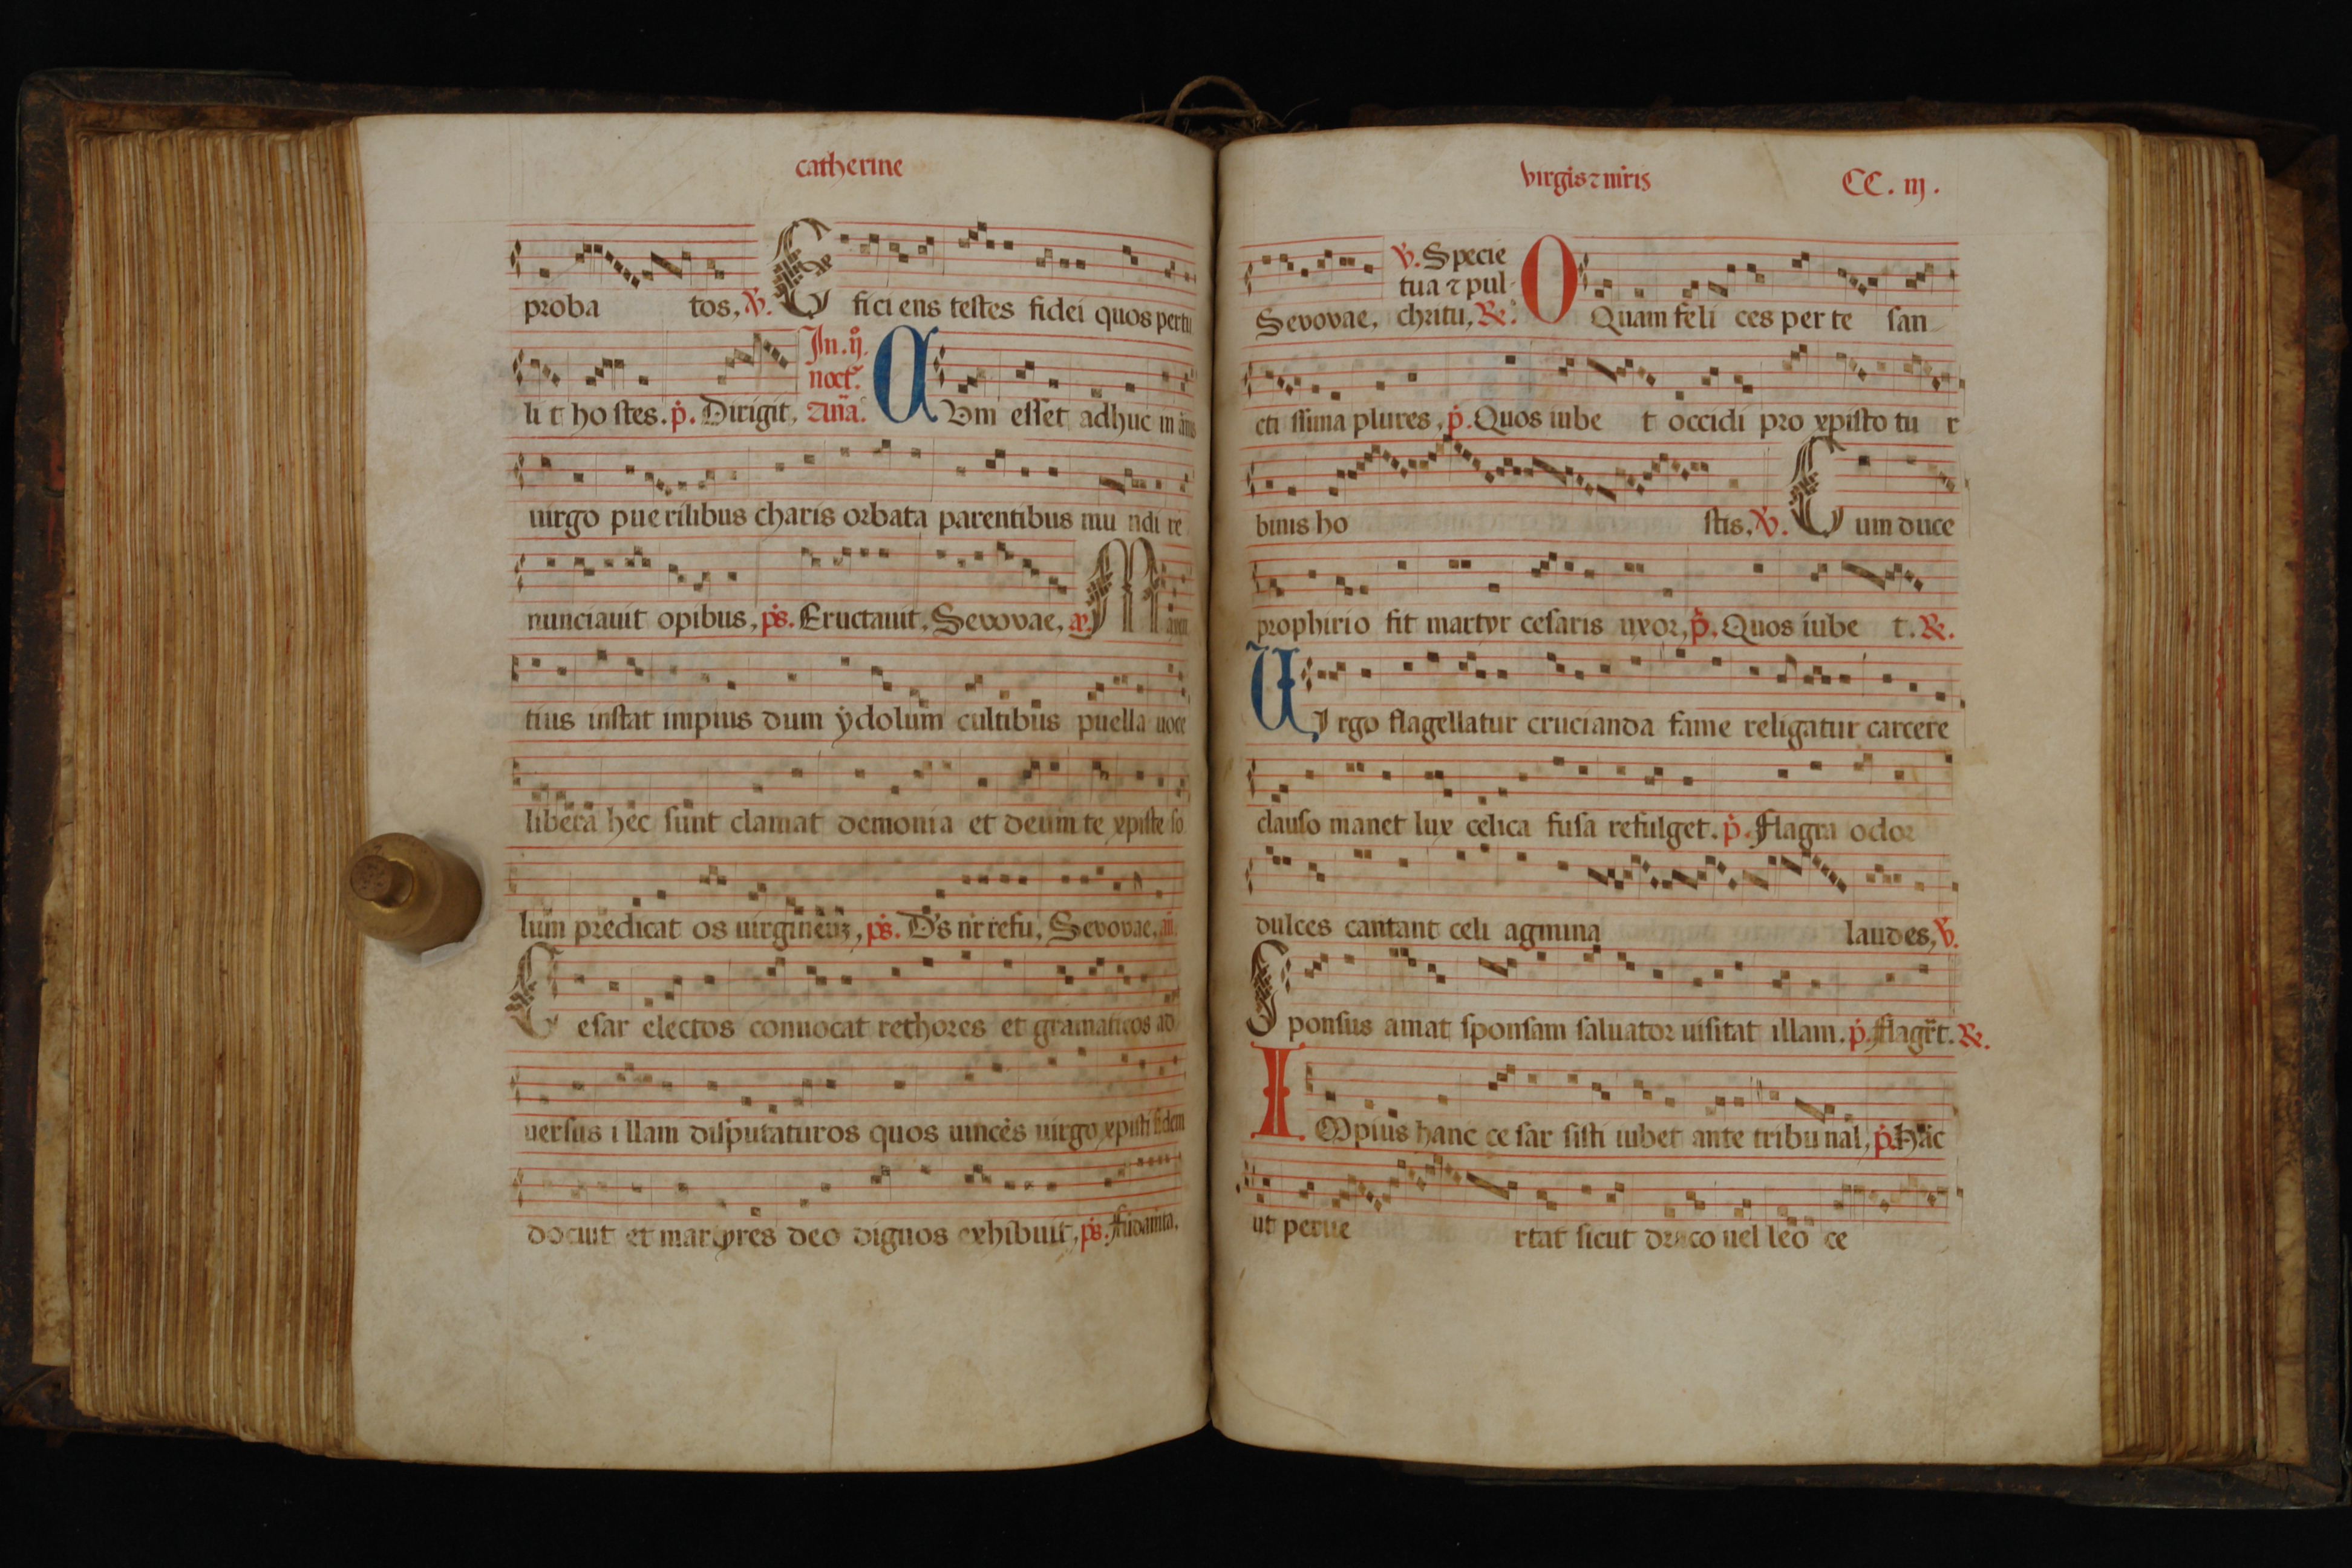 catherine
proba tos, ℣. E fici ens testes fidei quos pertu
li t ho stes. p̊. Dirigit,
In .ij.
noct.
Cvm esset adhuc in
uirgo pue rilibus charis orbata parentibus mu ndi re
nunciauit opibus, ps. Eructauit, Sevovae, M
tius instat impius dum ydolum cultibus puella uoce
libera hec sunt clamat demonia et deum te xpiste so
lum predicat os uirgineuz, ps. D's nr refu, Sevovae, an.
C esar electos conuocat rethores et gramaticos ad
uersus i llam disputaturos quos uinces uirgo xpisti fidem
docuit et martyres deo dignos exhibuit, ps. Fūdamta,
virgis ⁊ mris CC. iij.
Sevovae,
℣. Specie
tua ⁊ pul
chritu, ℞.
O Quam feli ces per te san
cti ssima plures, p̊. Quos iube t occidi pro xpisto tu r
binis ho stis, ℣. C um duce
prophirio fit martyr cesaris uxor, p̊. Quos iube t. ℞.
VI rgo flagellatur crucianda fame religatur carcere
clauso manet lux celica fusa refulget. p̊. Flagra odor
dulces cantant celi agmina laudes, ℣.
S ponsus amat sponsam saluator uisitat illam. p̊. flagrt. ℞.
I Mpius hanc ce sar sisti iubet ante tribu nal, p̊. Hāc
ut perue rtat sicut draco uel leo ce